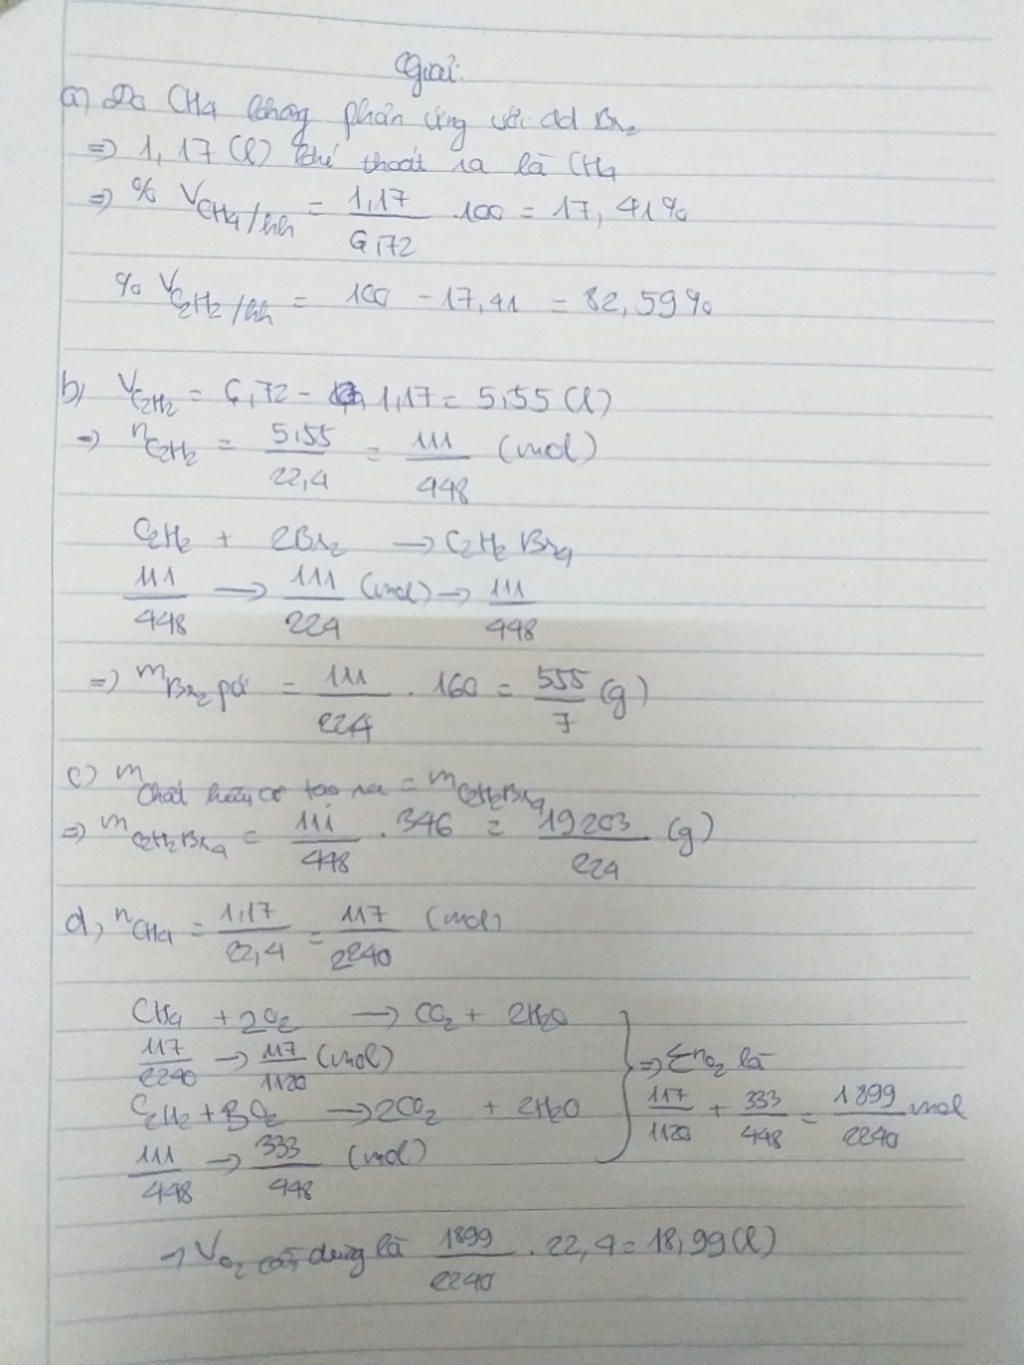 Giải:
a) Do CH4 không phản ứng với dd Br2
=> 1,17 (l) khí thoát ra là CH4
=> % VCH4/hh = 1,17/6,72 .100 = 17,41%
% VC2H2/hh = 100 - 17,41 = 82,59%
b) VC2H2 = 6,72 - 1,17 = 5,55 (l)
=> nC2H2 = 5,55/22,4 = 111/448 (mol)
C2H2 + 2Br2 -> C2H2Br4
111/448 -> 111/224 (mol) -> 111/448
=> mBr2 pứ = 111/224 . 160 = 555/7 (g)
c) mchất hữu cơ tạo ra = mC2H2Br4
=> mC2H2Br4 = 111/448 . 346 = 19203/224 (g)
d, nCH4 = 1,17/22,4 = 117/2240 (mol)
CH4 + 2O2 -> CO2 + 2H2O
117/2240 -> 117/1120 (mol)
C2H2 + 3O2 -> 2CO2 + 2H2O
111/448 -> 333/448 (mol)
=> ΣnO2 là
117/1120 + 333/448 = 1899/2240 mol
-> VO2 cần dùng là 1899/2240 . 22,4 = 18,99 (l)